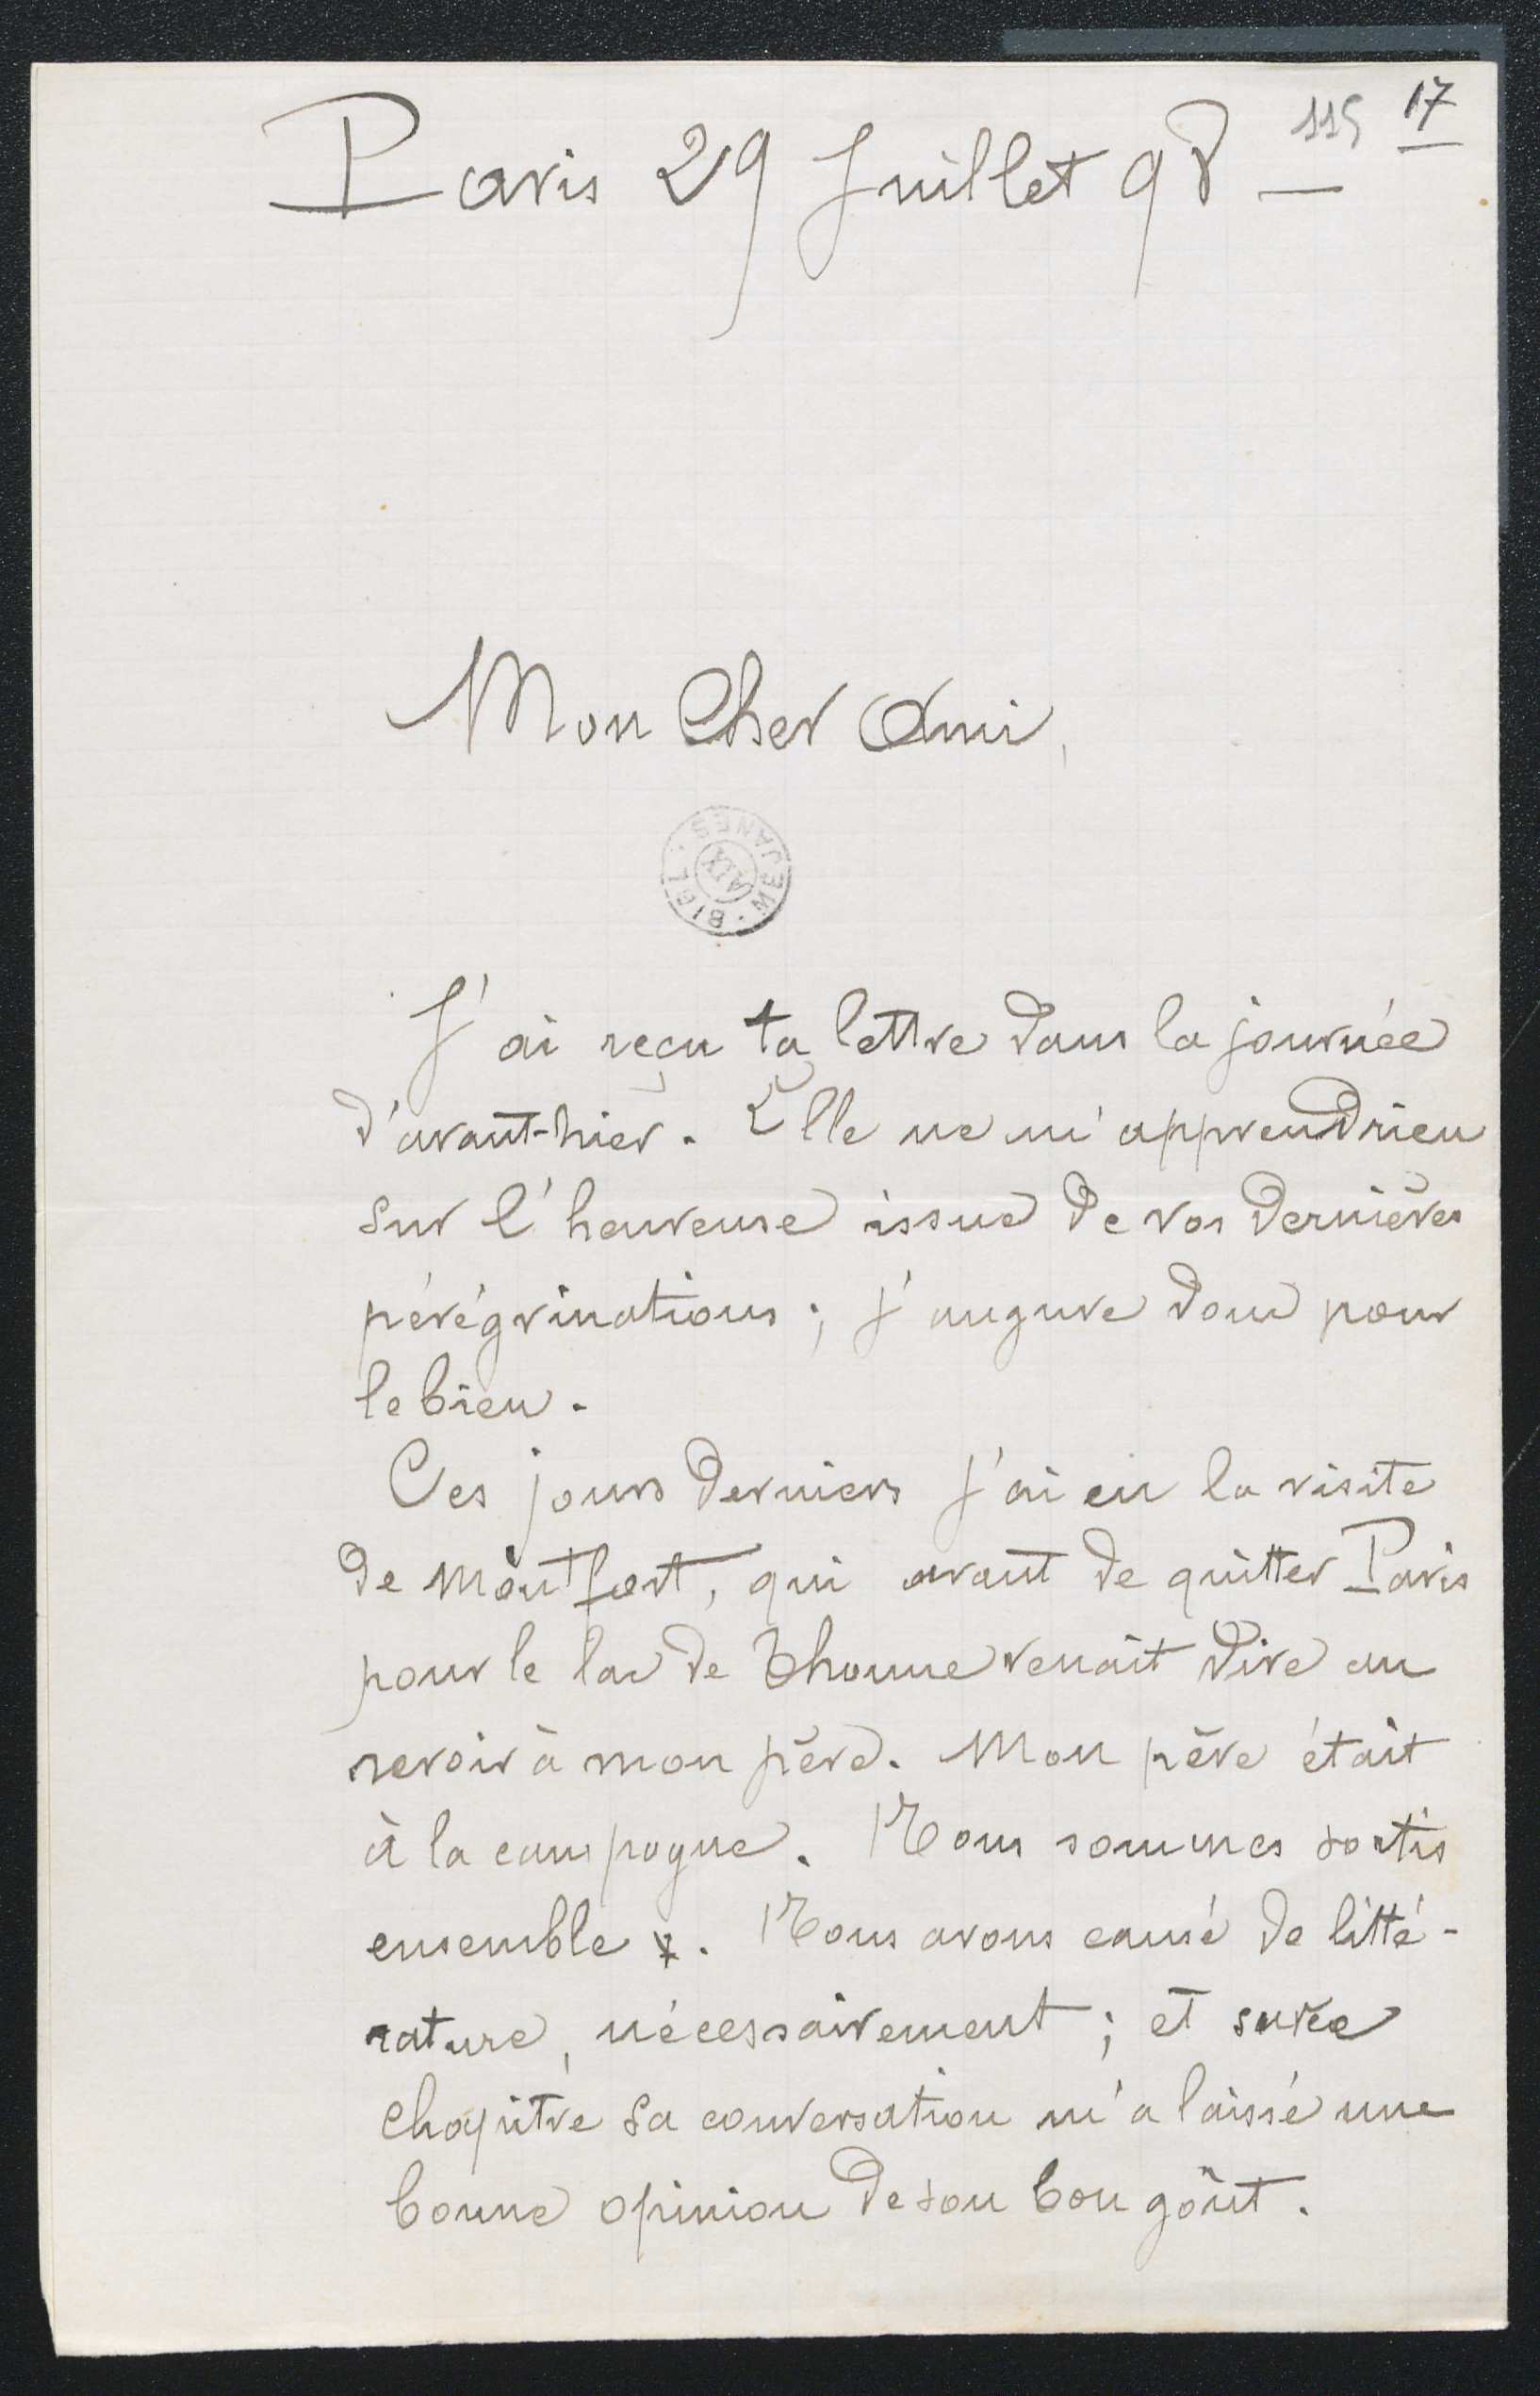 115 17
Paris 29 Juillet 98 —
Mon Cher Ami,
BIBL. MÉJANES. AIX
J'ai reçu ta lettre dans la journée
d'avant-hier. Elle ne m'apprend rien
sur l'heureuse issue de vos dernières
pérégrinations ; j'augure donc pour
le bien.
Ces jours derniers j'ai eu la visite
de Montfort, qui avant de quitter Paris
pour le lac de Thoune venait dire au
revoir à mon père. Mon père était
à la campagne. Nous sommes sortis
ensemble. Nous avons causé de litté-
rature, nécessairement ; et sur ce
chapitre sa conversation m'a laissé une
bonne opinion de son bon goût.